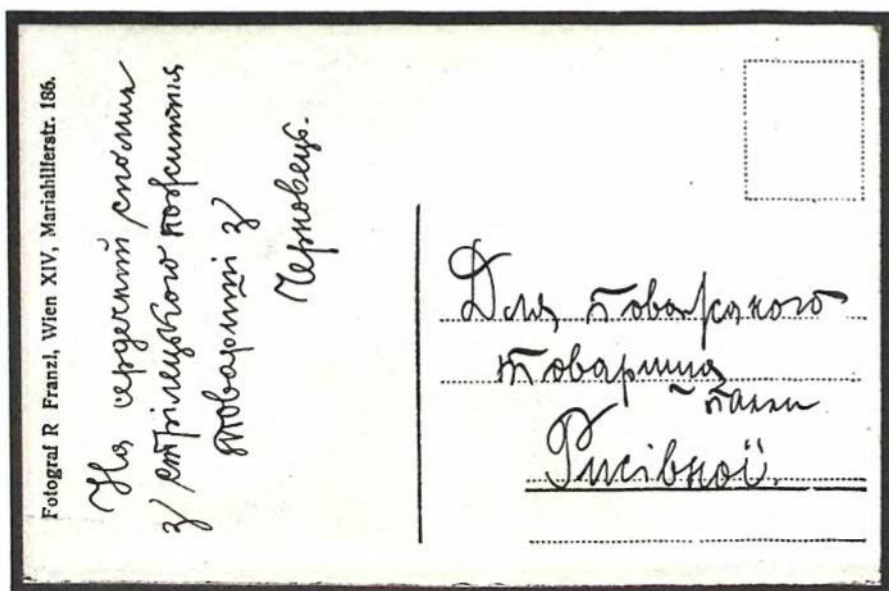 Fotograf R Franzl, Wien XIV, Mariahilferstr. 186.
На сердечний спомин
з стрілецького пожиття
товариші з
Черновець.
Для
товариша
Панни
Рисівної.